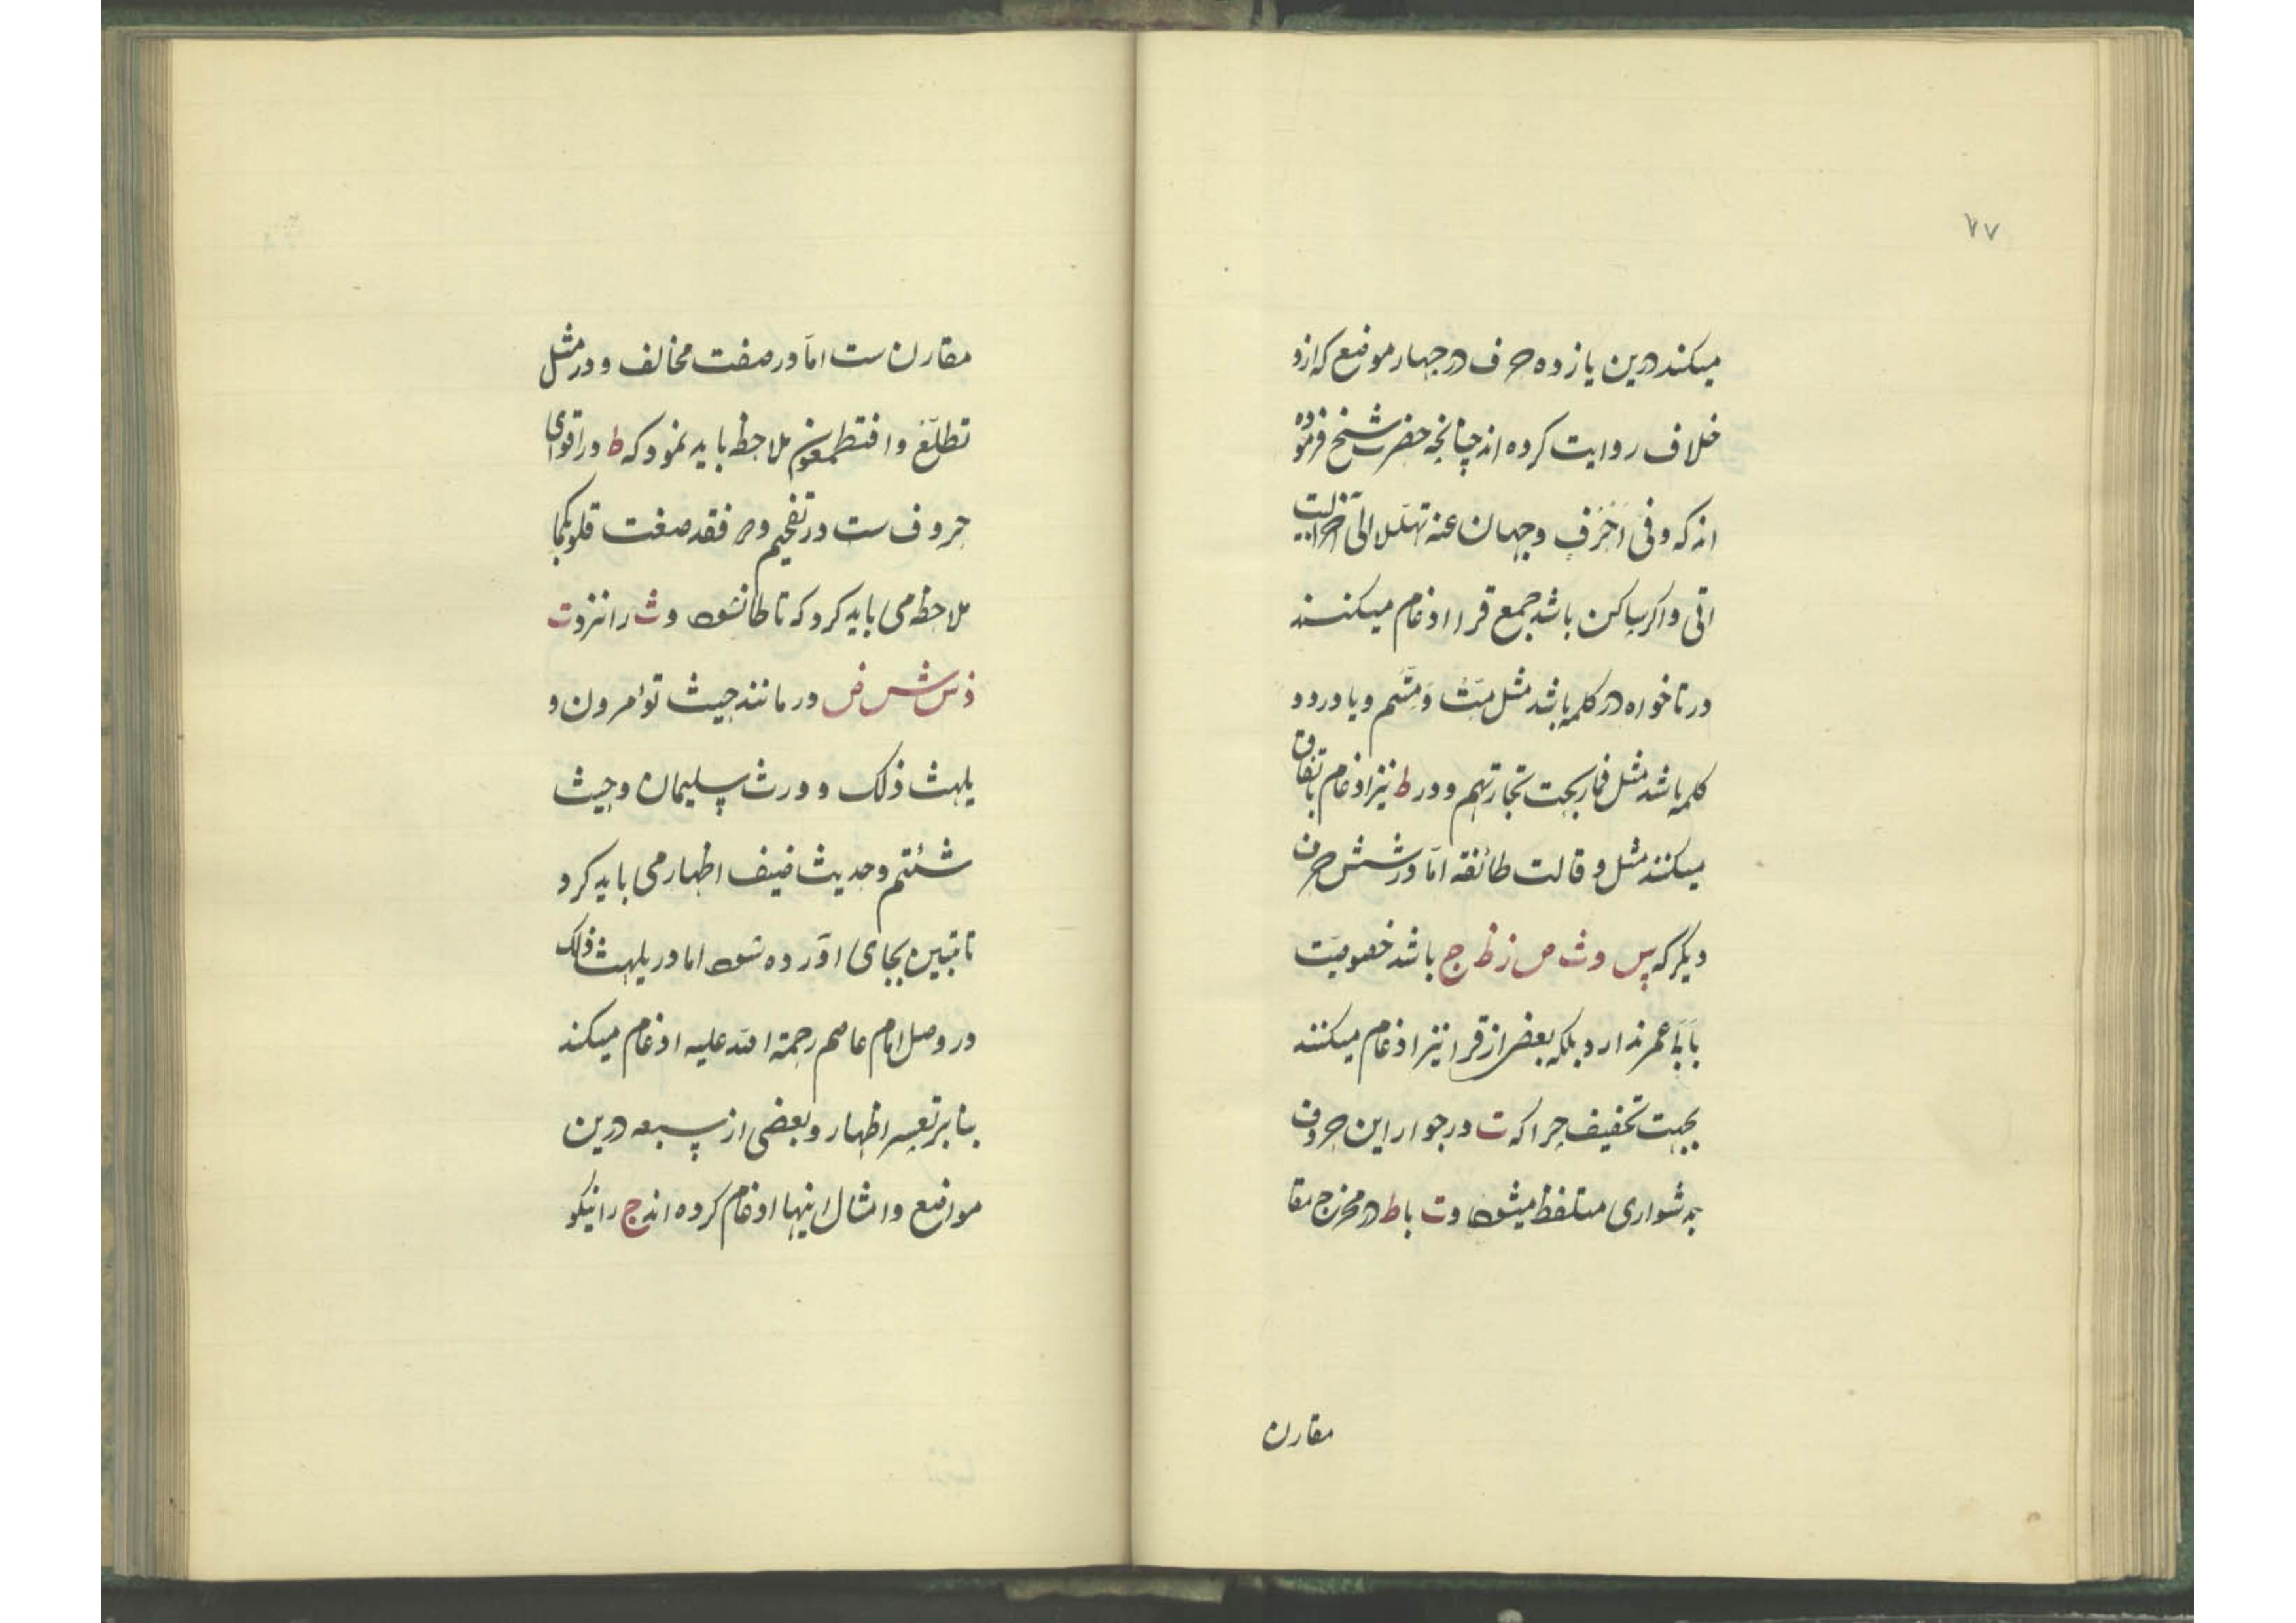 ۷۷
میکند درین یازده حرف در چهار موضع که ازو
خلاف روایت کرده اند چنانچه حضرت شیخ فرموده
اند که وفی احرف وجهان عنه تهلل
اتی و اگر ساکن باشد جمیع قرا ادغام میکنند
در تا خواه در کلمه باشد مثل متّ و متّم و یا در دو
کلمه باشد مثل فما ربحت تجارتهم و در ط نیز ادغام باتفاق
میکنند مثل و قالت طائفة امّا در شش حرف
دیگر که س و ث ص ز ظ ج باشد خصوصیّت
با بَا عمر ندارد بلکه بعضی از قرا نیز ادغام میکنند
بجهت تخفیف چرا که ت در جوار این حروف
بدشواری متلفظ میشود و ت با ط در مخرج مقا
مقارن
مقارن ست امّا در صفت مخالف و در مثل
تطلّع و افتطمعون ملاحظ باید نمود که ط در اقوای
حروف ست در تفخیم و فقد صغت قلوبکما
ملاحظ می باید کرد که تا طا نشود و ث را نزد ت
ذ س ش ض در مانند حیث تؤمرون و
یلهث ذلک و ورث سلیمان و حیث
شئتم و حدیث ضیف اظهار می باید کرد
تا تبیین بجای آورده شود اما در یلهث ذلک
در وصل امام عاصم رحمة الله علیه ادغام میکند
بنا بر تعسر اظهار و بعضی از سبعه درین
مواضع و امثال اینها ادغام کرده اند ج را نیکو